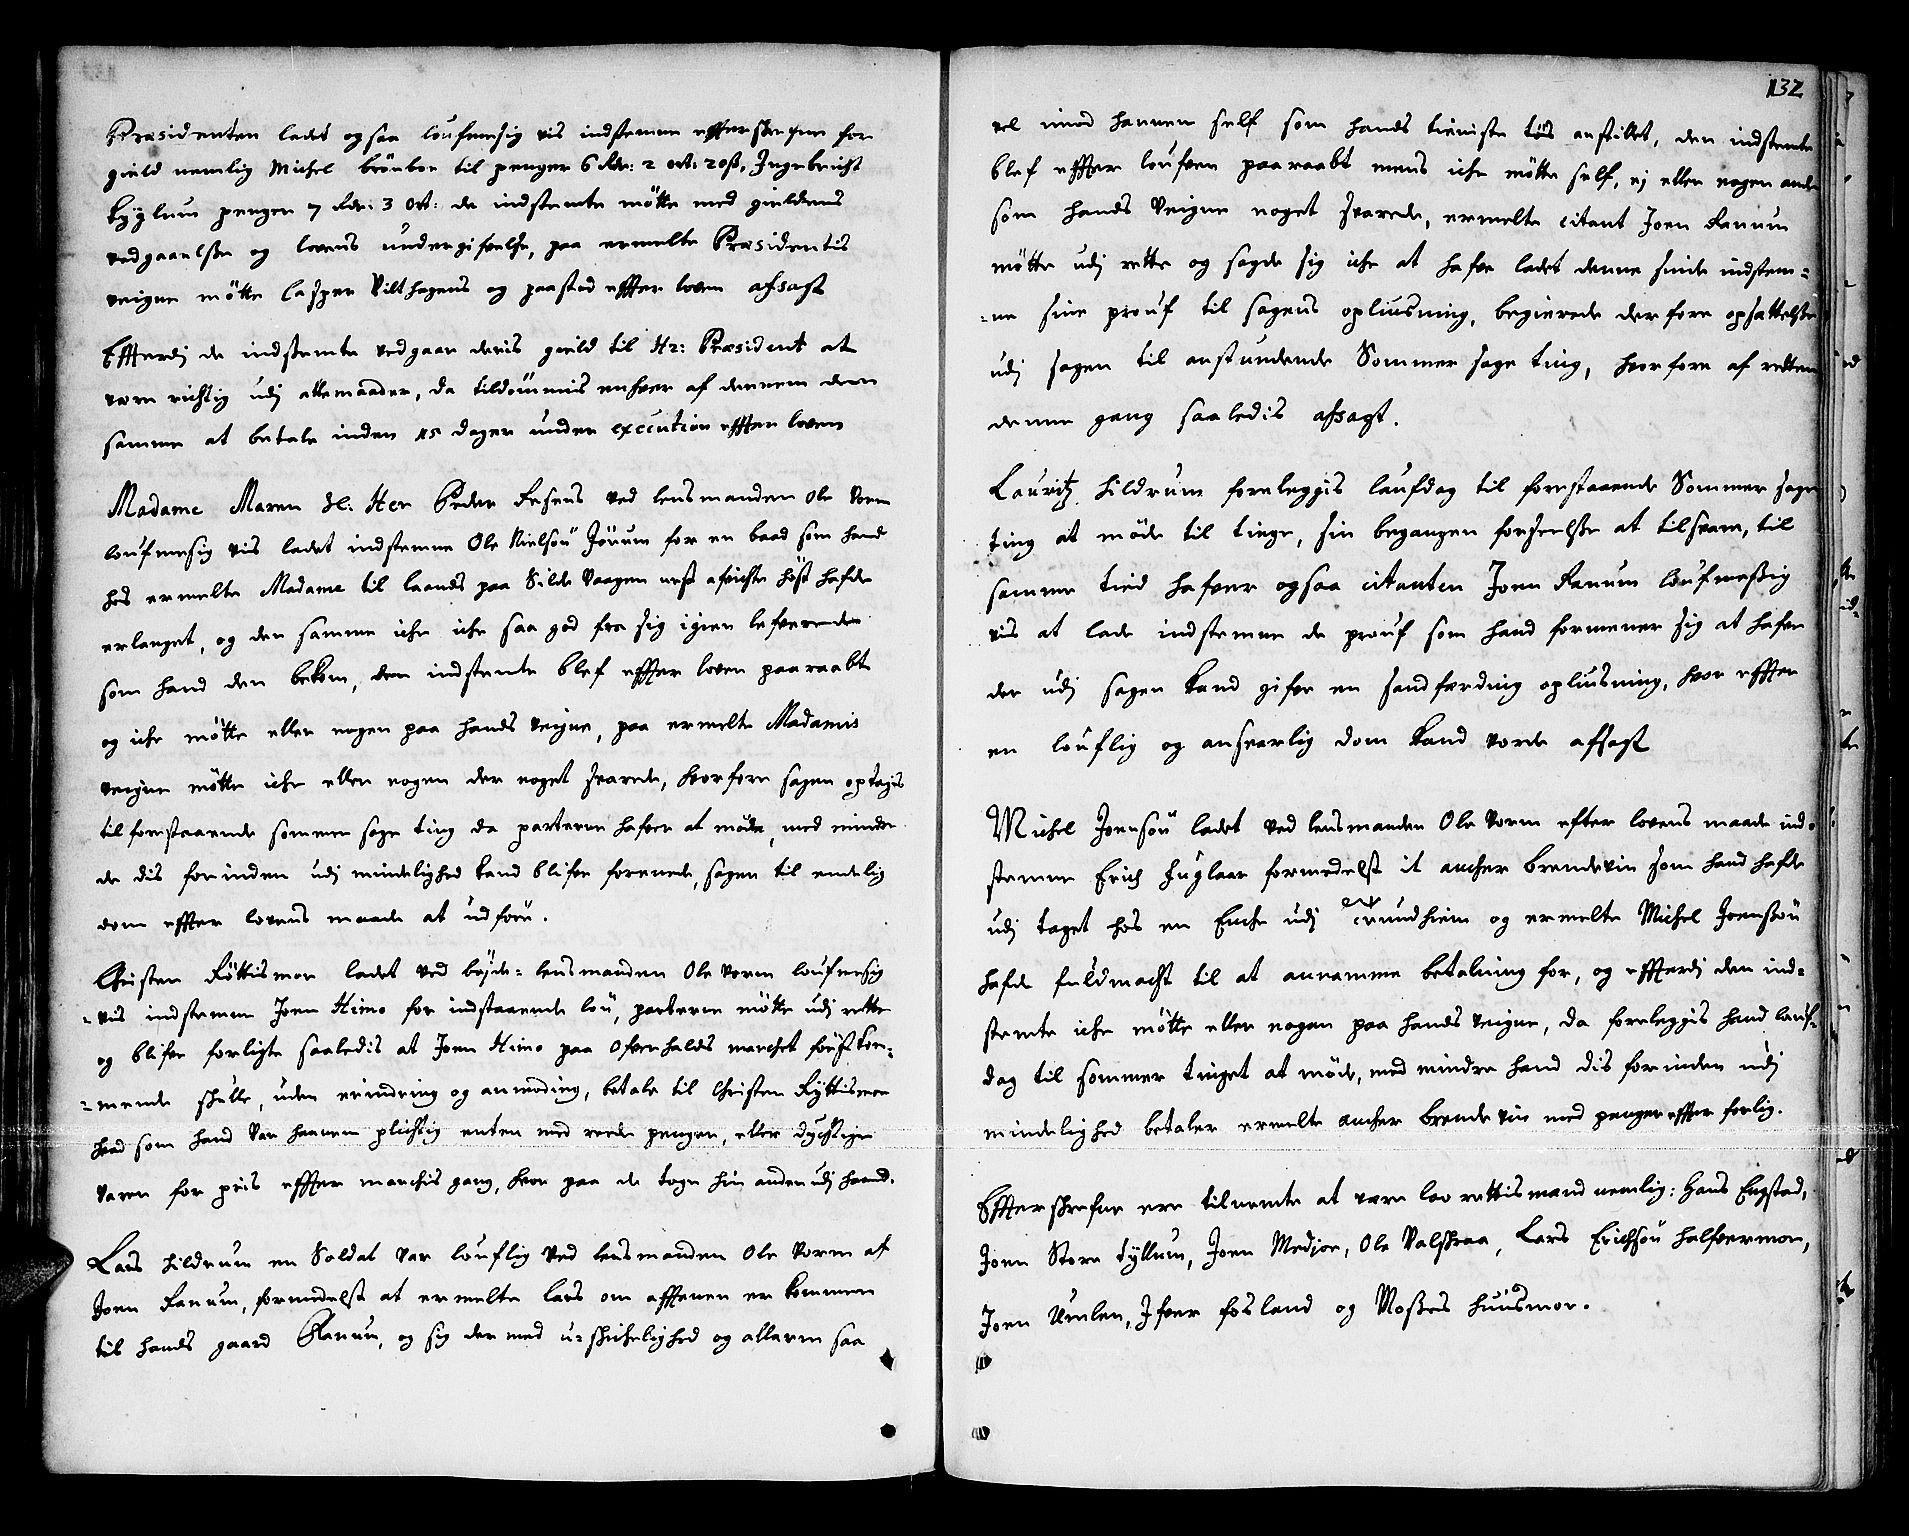 Præsidenten ladet ogsaa loufmesig vis indstemme effterskrefne for
gield nemlig Michel brönboe til penger 6 Rdr: 2 ort: 20 ß, Ingebricht
penger 7 Rdr: 3 Ort: de indstemte mötte med gieldens
vedgaaelsse og lovens undergifvelse, paa ermelte Præsidentis
veigne mötte Casper Vilthagens og paastod effter loven afsagt
Effterdj de indstemte vedgaar deris gield til Hr: Præsident at
være richtig udj allemaader, da tildömmis enhver af dennem dem
samme at betale inden 15 dager under execution effter loven
Madame Maren Sl: Her Peder Jesens ved lensmanden Ole Vorm
loufmesig vis ladet indstemme Ole Nielsön Jörum for en baad som hand
hos ermelte Madame til laands paa Silde Vaagen nest afvichte höst hafde
erlanget, og den samme iche iche saa god fra sig igien lefverede
som hand den bekom, den indstemte blef effter loven paaraabt
og iche mötte eller nogen paa hands veigne, paa ermelte Madamis
veigne mötte iche eller nogen der noget svarede, hvorfore sagen optagis
til forestaaende sommer sage ting da parterne hafver at möde, med minder
de dis forinden udj mindelighed kand blifve forenede, sagen til endelig
dom effter lovens maade at udföre.
Christen Röttismoe ladet ved böjde= lensmanden Ole Vorm loufmesig
=vis indstemme Joen Himo for indstaaende lön, parterne mötte udj rette
og blifve forligte saaledis at Joen Himo paa Ofverhalds marchet först kom=
=mende skulle, uden erindring og anmoding, betale til Christen Ryttismoe
hvad som hand var hannem plichtig enten med reede penger, eller dychtige
varer for pris effter marchis gang, hvor paa de togn hin anden udj haand.
Lars Hildrum en Soldat var louflig ved lensmanden Ole Vorm af
Joen Ranum, formedelst at ermelte Lars om afftenen er kommen
til hands gaard Ranum, og sig der med u=skichelighed og allarm saa
132
vel imod hannem self som hands tieniste töis anstillet, den indstemte
blef effter loufven paaraabt mens iche mötte self, ej eller nogen anden
som hands veigne noget svarede, ermelte citant Joen Ranum
mötte udj rette og sagde sig iche at hafve ladet denne sinde indstem=
=me sine prouf til sagens opliusning, begierede derfore opsættelse
udj sagen til anstundende Sommer sage ting, hvorfore af retten
denne gang saaledis afsagt.
Lauritz Hildrum foreleggis laufdag til forestaaende Sommer sage
ting at möde til tinge, sin begangen forseelsse at tilsvare, til
samme tied hafver ogsaa citanten Joen Ranum loufmeßig
vis at lade indstemme de prouf som hand formener sig at hafve
der udj sagen kand gifve en sandfærdig opliusning, hvor effter
en louflig og ansvarlig dom kand vorde afsagt
Michel Joensön ladet ved lensmanden Ole Vorm efter lovens maade ind=
stemme Erich Fuglaar formedelst it ancher brendevin som hand hafde
udj taget hos en Enche udj Trundhiem og ermelte Michel Joensön
hafde fuldmacht til at annamme betalning for, og effterdj den ind=
stemte iche mötte eller nogen paa hands veigne, da foreleggis hand lauf=
dag til sommer tinget at möde, med mindre hand dis forinden udj
mindelighed betaler ermelte ancher brendevin med penger effter forlig.
Effterskrefne ere tilnemte at være lav rettismænd nemlig: Hans Engstad,
Joen Store Tyllum, Joen Medjoe, Ole Valskraa, Lars Erichsön Halfvermoe,
Joen Umlen, Ifver Fosland og Moßes Huusmoe.